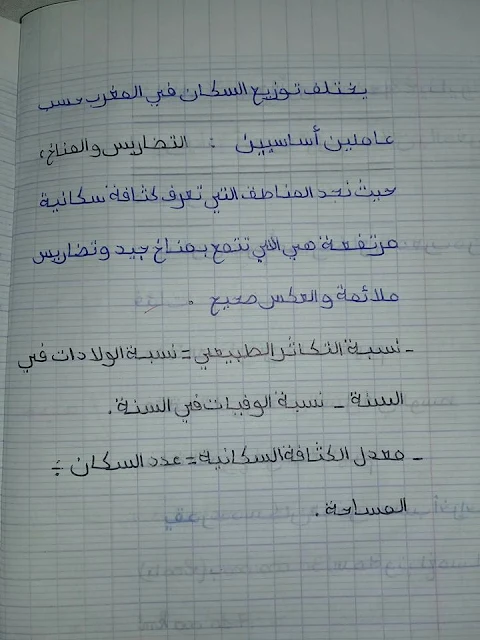 يختلف توزيع السكان في المغرب حسب
عاملين أساسيين : التضاريس والمناخ،
حيث نجد المناطق التي تعرف كثافة سكانية
مرتفعة هي التي تتمع بمناخ جيد وتضاريس
ملائمة والعكس صحيح .
- نسبة التكاثر الطبيعي = نسبة الولادات في
السنة - نسبة الوفيات في السنة .
- معدل الكثافة السكانية = عدد السكان ÷
المساحة .